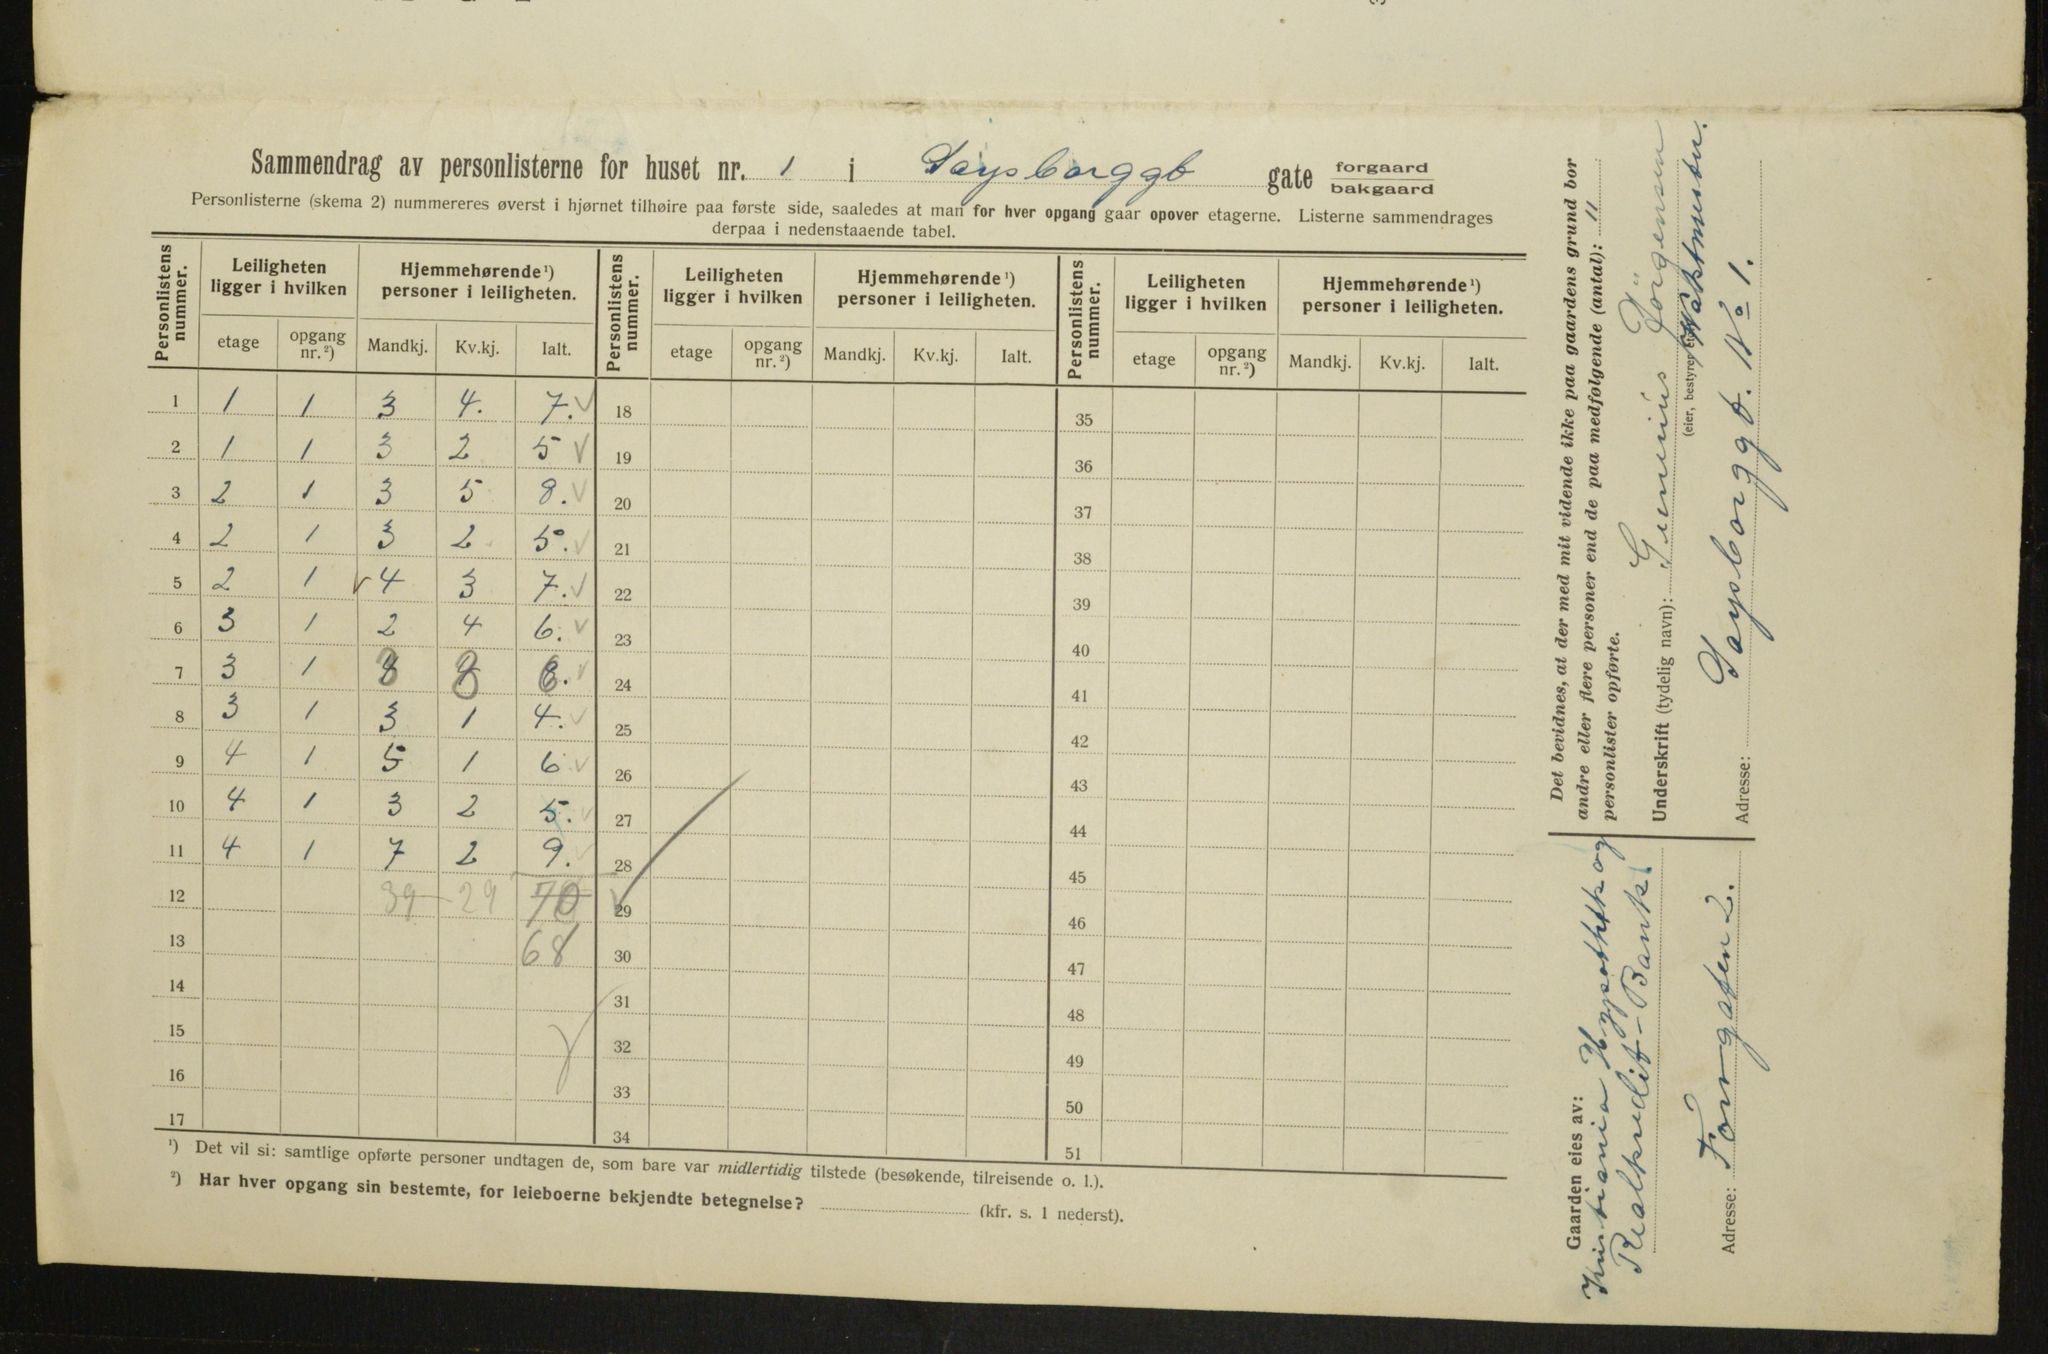 Sammendrag av personlisterne for huset nr. 1 i Saxsborggt gate forgaard
bakgaard
Personlisterne (skema 2) nummereres øverst i hjørnet tilhøire paa første side, saaledes at man for hver opgang gaar opover etagerne. Listerne sammendrages
derpaa i nedenstaaende tabel.
Personlistens nummer. Leiligheten ligger i hvilken Hjemmehørende ¹) personer i leiligheten. Personlistens nummer. Leiligheten ligger i hvilken Hjemmehørende ¹) personer i leiligheten. Personlistens nummer. Leiligheten ligger i hvilken Hjemmehørende ¹) personer i leiligheten.
etage opgang nr. ²) Mandkj. Kv.kj. Ialt. etage opgang nr. ²) Mandkj. Kv.kj. Ialt. etage opgang nr. ²) Mandkj. Kv.kj. Ialt.
1 1 1 3 4. 7. 18 35
2 1 1 3 2 5 19 36
3 2 1 3 5 8. 20 37
4 2 1 3 2 5. 21 38
5 2 1 4 3 7. 22 39
6 3 1 2 4 6. 23 40
7 3 1 3 3 6. 24 41
8 3 1 3 1 4. 25 42
9 4 1 5 1 6 26 43
10 4 1 3 2 5. 27 44
11 4 1 7 2 9. 28 45
12 39 29 70 29 46
13 68 30 47
14 31 48
15 32 49
16 33 50
17 34 51
¹) Det vil si: samtlige opførte personer undtagen de, som bare var midlertidig tilstede (besøkende, tilreisende o. l.).
²) Har hver opgang sin bestemte, for leieboerne bekjendte betegnelse? (kfr. s. 1 nederst).
Det bevidnes, at der med mit vidende ikke paa gaardens grund bor
andre eller flere personer end de paa medfølgende (antal): 11
personlister opførte.
Underskrift (tydelig navn): Guninius Jörgensen
(eier, bestyrer Vaktmester.
Adresse: Saxsborggt. No 1.
Gaarden eies av:
Kristiania Hypothek og
Realkredit-Bank.
Adresse: Torvgaten 2.